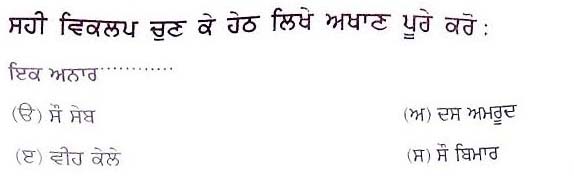 ਸਹੀ ਵਿਕਲਪ ਚੁਣ ਕੇ ਹੇਠ ਲਿਖੇ ਅਖਾਣ ਪੂਰੇ ਕਰੋ :
ਇਕ ਅਨਾਰ.............
(ੳ) ਸੌ ਸੇਬ (ਅ) ਦਸ ਅਮਰੂਦ
(ੲ) ਵੀਹ ਕੇਲੇ (ਸ) ਸੌ ਬਿਮਾਰ